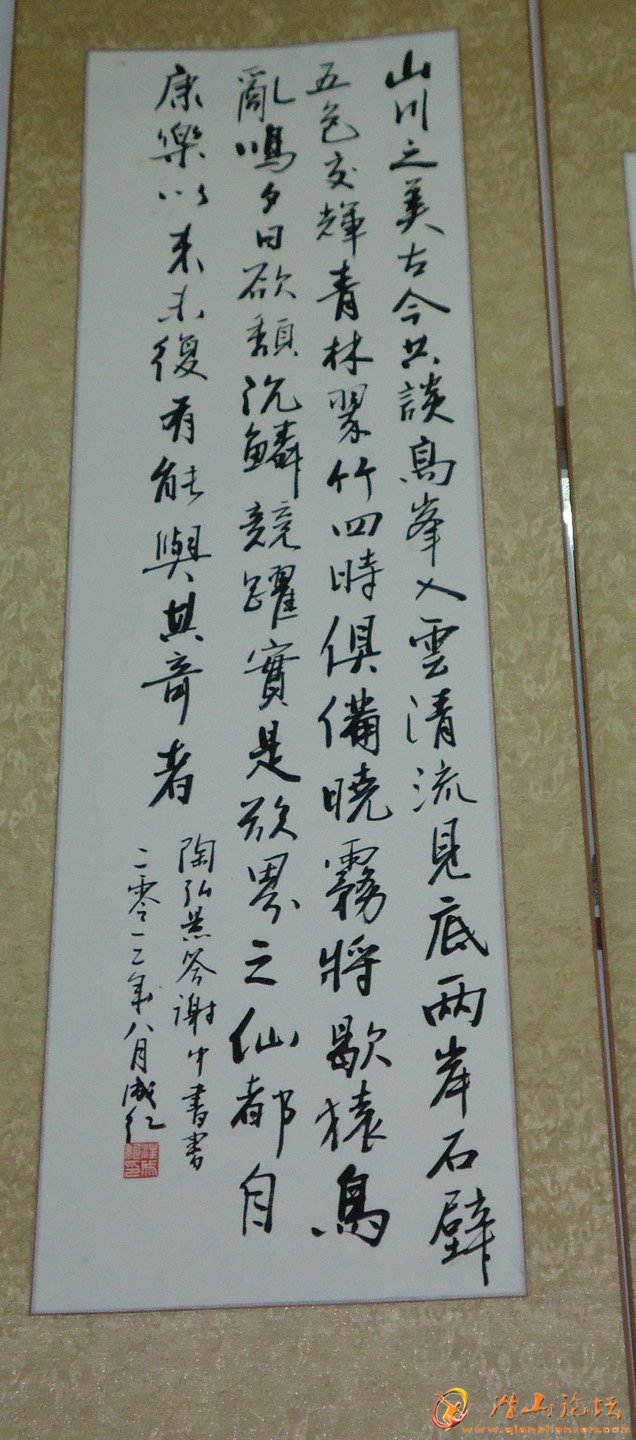 山川之美古今共談高峯入雲清流見底兩岸石壁
五色交輝青林翠竹四時俱備曉霧將歇猿鳥
亂鳴夕日欲頹沉鱗競躍實是欲界之仙都自
康樂以來未復有能與其奇者
陶弘景答謝中書書
二零一二年八月成红
潜山论坛
www.qianshanren.com